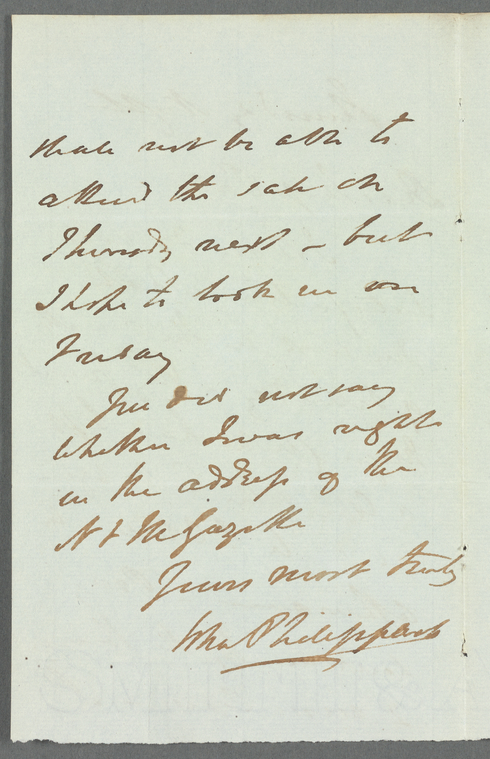 shall not be able to
attend the sale on
Thursday next – but
I hope to look in on
Friday
You did not say
whether I was right
in the address of the
N & M Gazette
Yours most truly
Jno Philippart